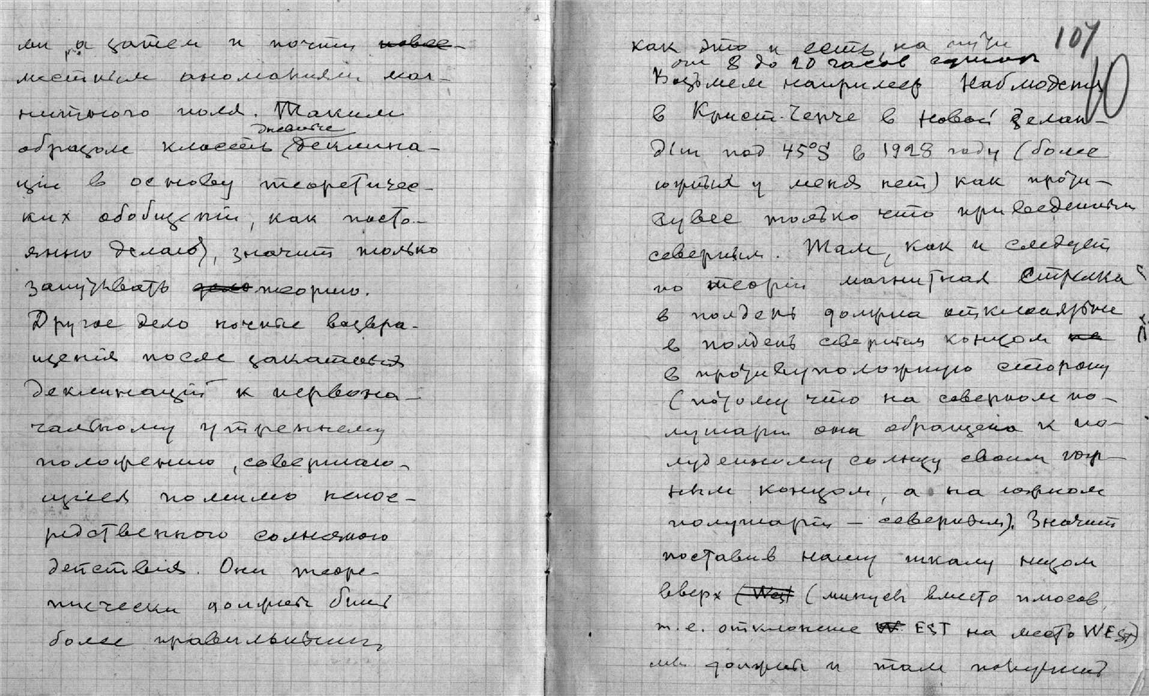 ми, а затем и почти
местным аномалиям маг-
нитного поля. Таким
дневные
образом класть деклина-
ции в основу теоретичес-
ких обобщений, как посто-
янно делают, значит только
запутывать теорию.
Другое дело ночные возвра-
щения после закатных
деклинаций к первона-
чальному утреннему
положению, совершаю-
щиеся помимо непос-
редственного солнечного
действия. Они теоре-
тически должны быть
более правильными,
107
10
как это и есть, на пути
от 8 до 20 часов
Возьмем например наблюдения
в Крист-Черче в Новой Зелан-
дии под 45°S в 1928 году (более
южных у меня нет) как проти-
вувес только что приведенным
северным. Там, как и следует
по теории магнитная стрелка
в полдень должна отклоняться
в полдень северным концом не
в противуположную сторону
(потому что на северном по-
лушарии она обращена к по-
луденному солнцу своим юж-
ным концом, а на южном
полушарии – северным). Значит
поставив нашу шкалу низом
вверх (West (минусы вместо плюсов,
т.е. отклонение W EST на место WEST)
мы должны и там получить